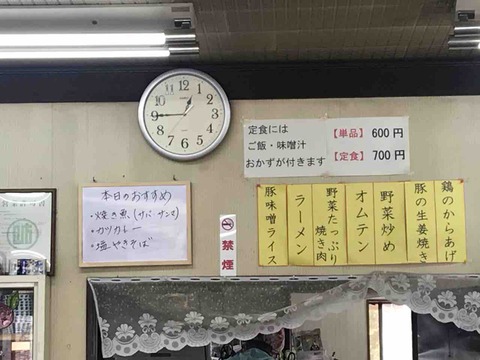 定食には
ご飯・味噌汁
おかずが付きます
【単品】 600円
【定食】 700円
本日のおすすめ
・焼き魚(サバ サンマ)
・カツカレー
・塩やきそば
禁煙
鶏のからあげ
豚の生姜焼き
野菜炒め
オムテン
野菜たっぷり
焼き肉
ラーメン
豚味噌ライス